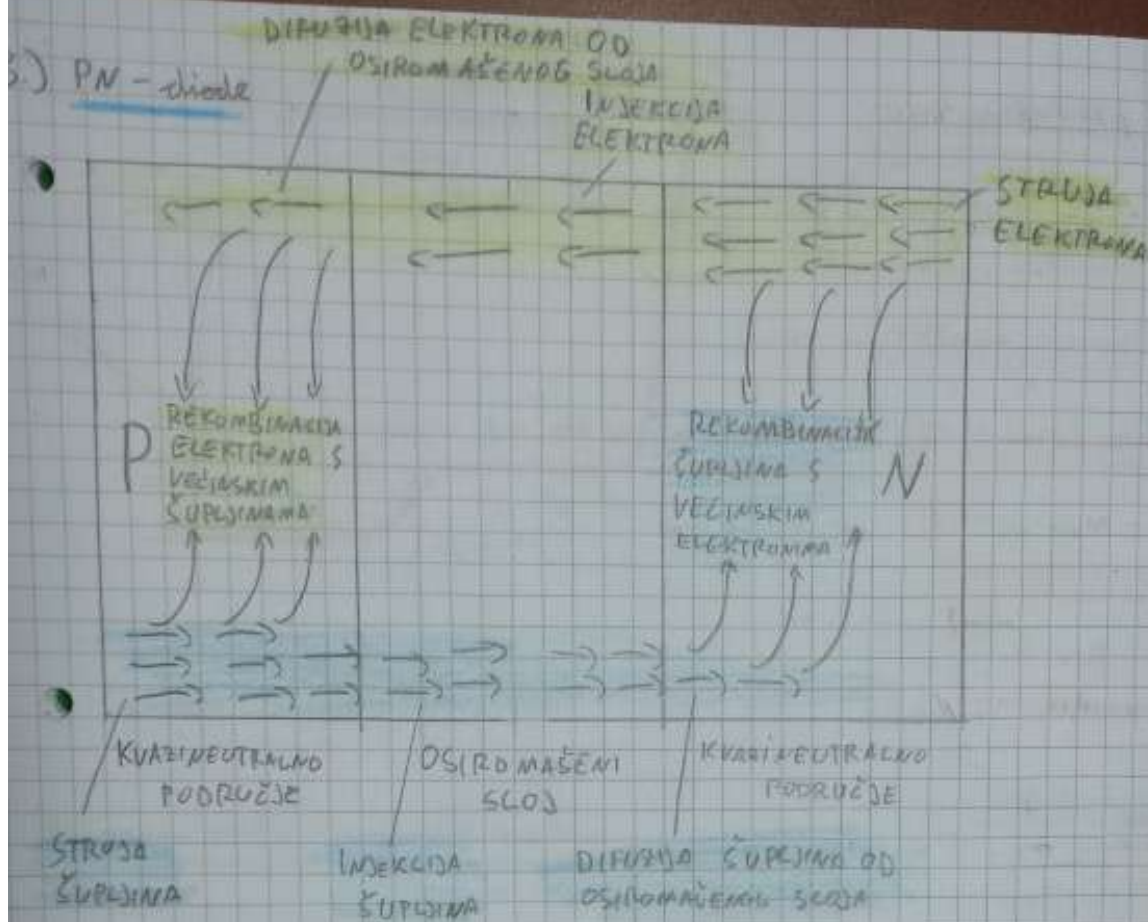 DIFUZIJA ELEKTRONA OD
OSIROMAŠENOG SLOJA
3.) PN - diode
INJEKCIJA
ELEKTRONA
STRUJA
ELEKTRONA
P
REKOMBINACIJA
ELEKTRONA S
VEĆINSKIM
ŠUPLJINAMA
REKOMBINACIJA
ŠUPLJINA S
VEĆINSKIM
ELEKTRONIMA
N
KVAZINEUTRALNO
PODRUČJE
OSIROMAŠENI
SLOJ
KVAZINEUTRALNO
PODRUČJE
STRUJA
ŠUPLJINA
INJEKCIJA
ŠUPLJINA
DIFUZIJA ŠUPLJINA OD
OSIROMAŠENOG SLOJA